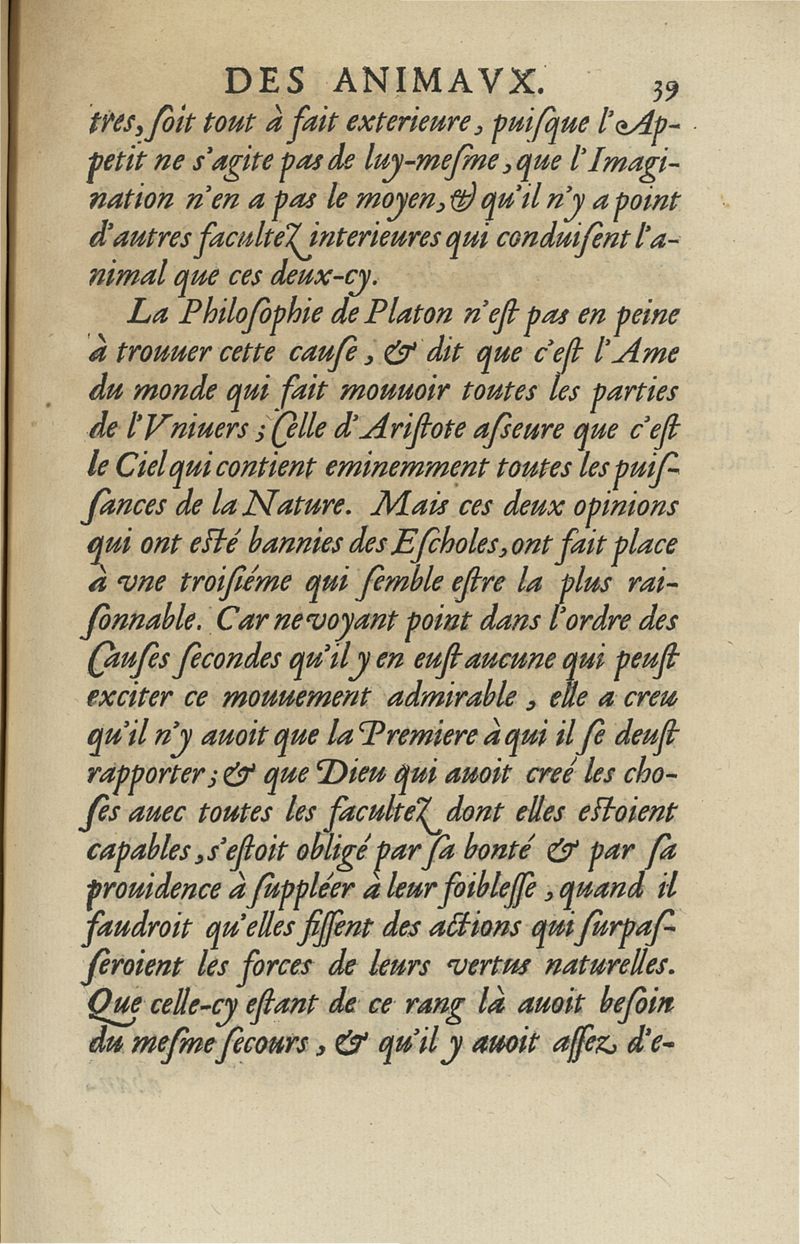 DES ANIMAVX. 39
tres, ſoit tout à fait exterieure, puiſque l'Ap-
petit ne s'agite pas de luy-meſme, que l'Imagi-
nation n'en a pas le moyen, & qu'il n'y a point
d'autres facultez interieures qui conduiſent l'a-
nimal que ces deux-cy.
La Philoſophie de Platon n'eſt pas en peine
à trouuer cette cauſe, & dit que c'eſt l'Ame
du monde qui fait mouuoir toutes les parties
de l'Vniuers; Celle d'Ariſtote aſseure que c'eſt
le Ciel qui contient eminemment toutes les puiſ-
ſances de la Nature. Mais ces deux opinions
qui ont eſté bannies des Eſcholes, ont fait place
à vne troiſiéme qui ſemble eſtre la plus rai-
ſonnable. Car ne voyant point dans l'ordre des
Cauſes ſecondes qu'il y en euſt aucune qui peuſt
exciter ce mouuement admirable, elle a creu
qu'il n'y auoit que la Premiere à qui il ſe deuſt
rapporter; & que Dieu qui auoit creé les cho-
ſes auec toutes les facultez dont elles eſtoient
capables, s'eſtoit obligé par ſa bonté & par ſa
prouidence à ſuppléer à leur foibleſſe, quand il
faudroit qu'elles fiſſent des actions qui ſurpaſ-
ſeroient les forces de leurs vertus naturelles.
Que celle-cy eſtant de ce rang là auoit beſoin
du meſme ſecours, & qu'il y auoit aſſez d'e-